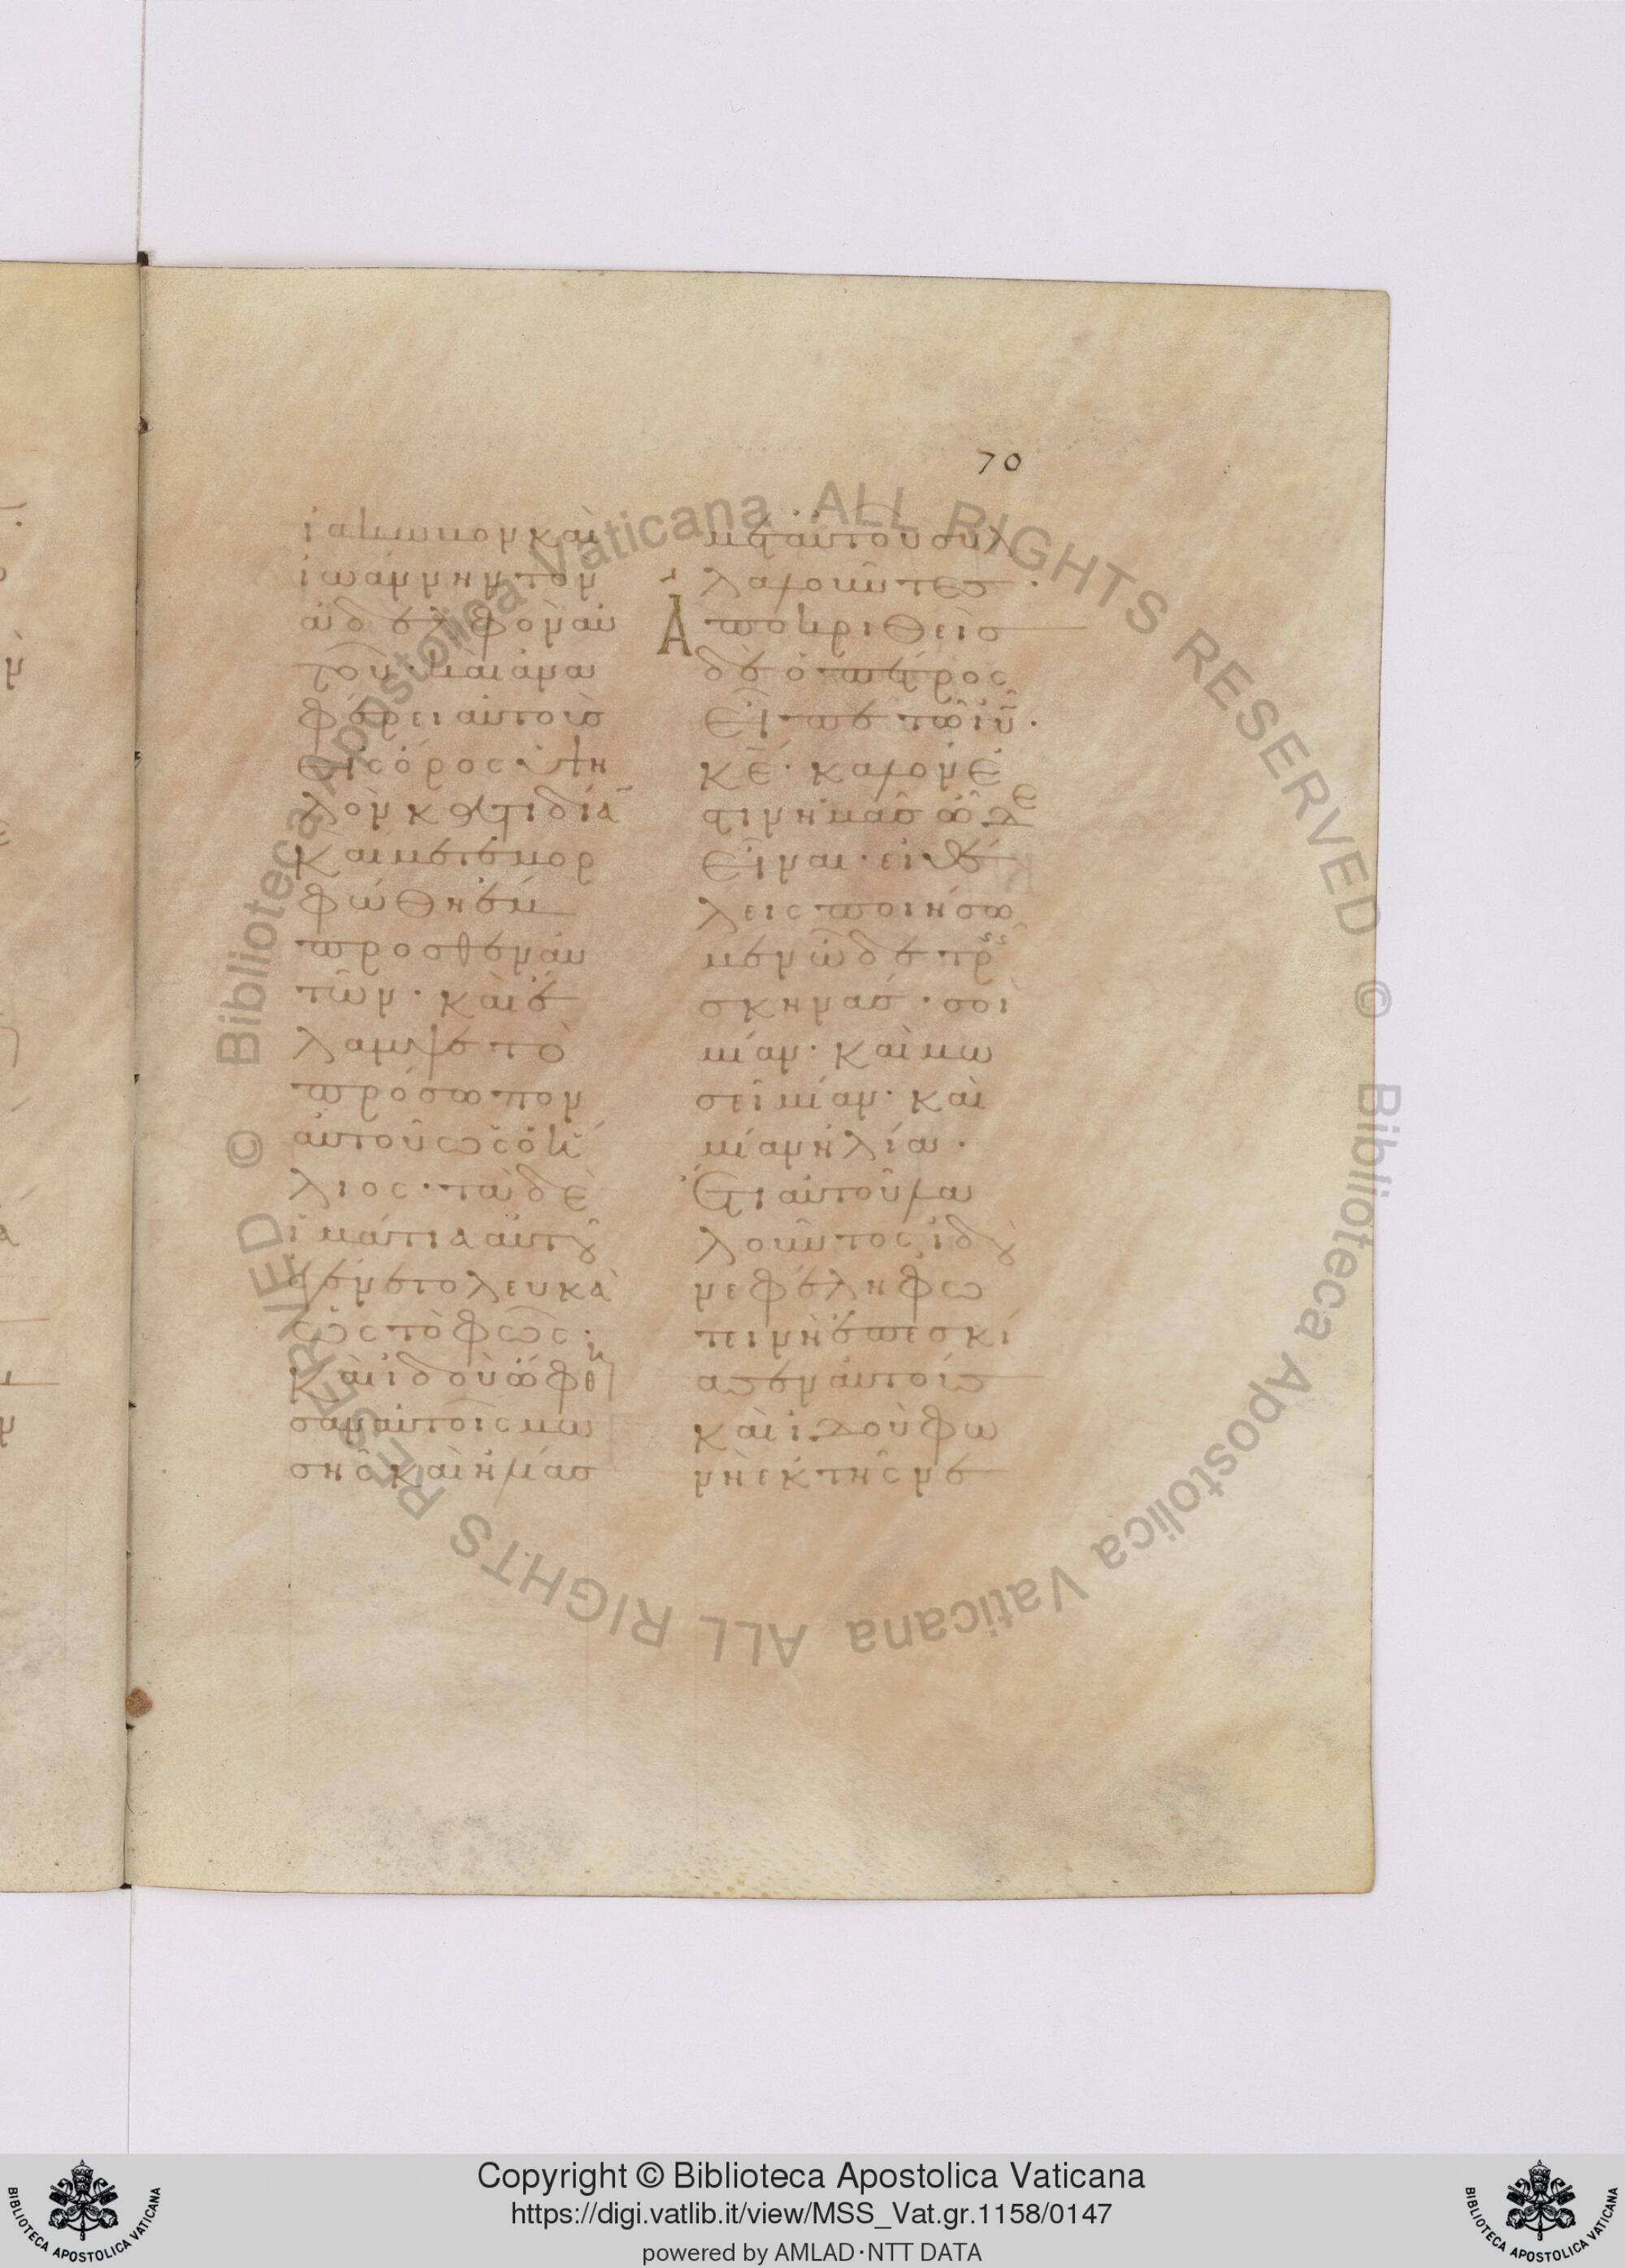 70
ἰάκωβον καὶ
ἰωάννην τὸν
ἀδελφὸν αὐ
τοῦ· καὶ ἀνα
φέρει αὐτοὺσ
εἰς ὄρος ὑψη
λὸν κατ ιδίαν
καὶ μετεμορ
φώθη ἔμ
προσθεν αὐ
τῶν· καὶ ἔ
λαμψε τὸ
πρόσωπον
αὐτοῦ ὡς ὁ ἥ
λιος· τὰ δὲ
ἱμάτια αὐτοῦ
ἐγένετο λευκὰ
ὡς τὸ φῶς·
Καὶ ἰδοὺ ὤφθη
σαν αὐτοῖς μω
σῆς καὶ ἠλίασ
μετ αὐτοῦ συλ
λαλοῦντεσ·
Ἀποκριθεὶσ
δὲ ὁ πέτρος
εἶπε τῶ ἰῦ·
κε· καλόν ἐ
στιν ἡμᾶσ ὧδε
εἶναι· εἰ θέ
λεις ποιήσω
μεν ὧδε τρεῖς
σκηνάσ· σοὶ
μίαν· καὶ μω
σεῖ μίαν· καὶ
μίαν ἠλία·
Ἔτι αὐτοῦ λα
λοῦντος ἰδοὺ
νεφέλη φω
τεινὴ ἐπεσκί
ασεν αὐτοὺσ
καὶ ἰδοὺ φω
νὴ ἐκ τῆς νε
Biblioteca Apostolica Vaticana ALL RIGHTS RESERVED © Biblioteca Apostolica Vaticana ALL RIGHTS RESERVED ©
Copyright © Biblioteca Apostolica Vaticana
https://digi.vatlib.it/view/MSS_Vat.gr.1158/0147
powered by AMLAD·NTT DATA
BIBLIOTECA APOSTOLICA VATICANA
BIBLIOTECA APOSTOLICA VATICANA